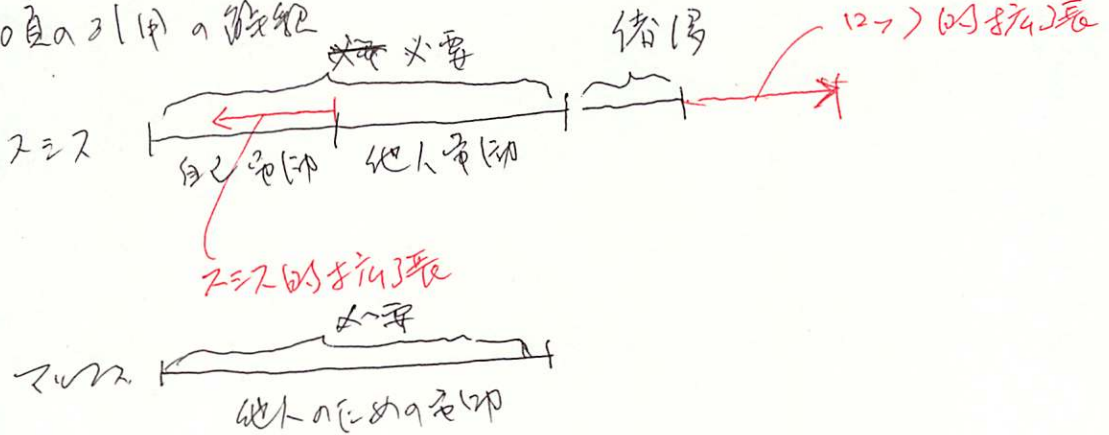 0頁の引用の
必要 必要
緒得
ロック的拡張
スミス
自己労働
他人労働
スミス的拡張
必要
マルクス
他人のための労働